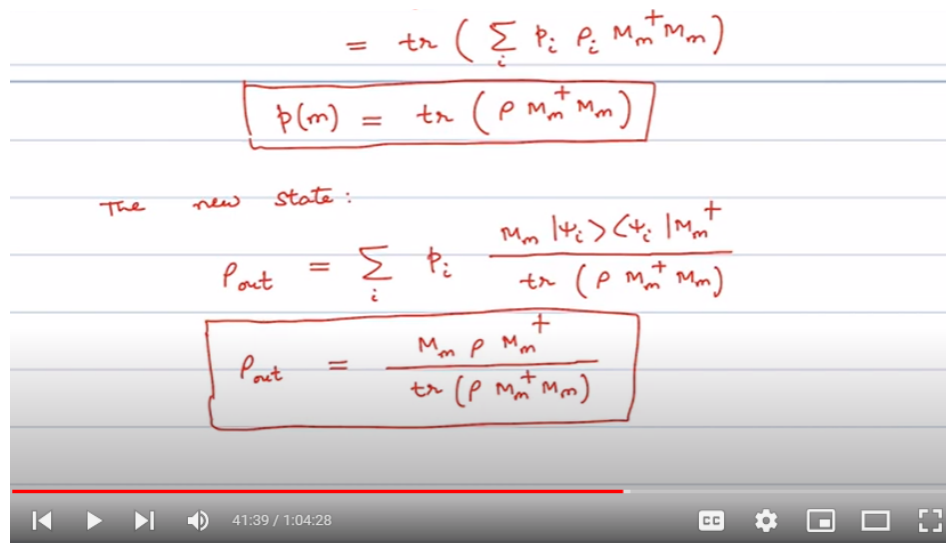 = tr ( Σ_i p_i ρ_i M_m^+ M_m )
p(m) = tr ( ρ M_m^+ M_m )
The new state :
ρ_out = Σ_i p_i M_m |ψ_i> <ψ_i| M_m^+ / tr ( ρ M_m^+ M_m )
ρ_out = M_m ρ M_m^+ / tr ( ρ M_m^+ M_m )
41:39 / 1:04:28 CC